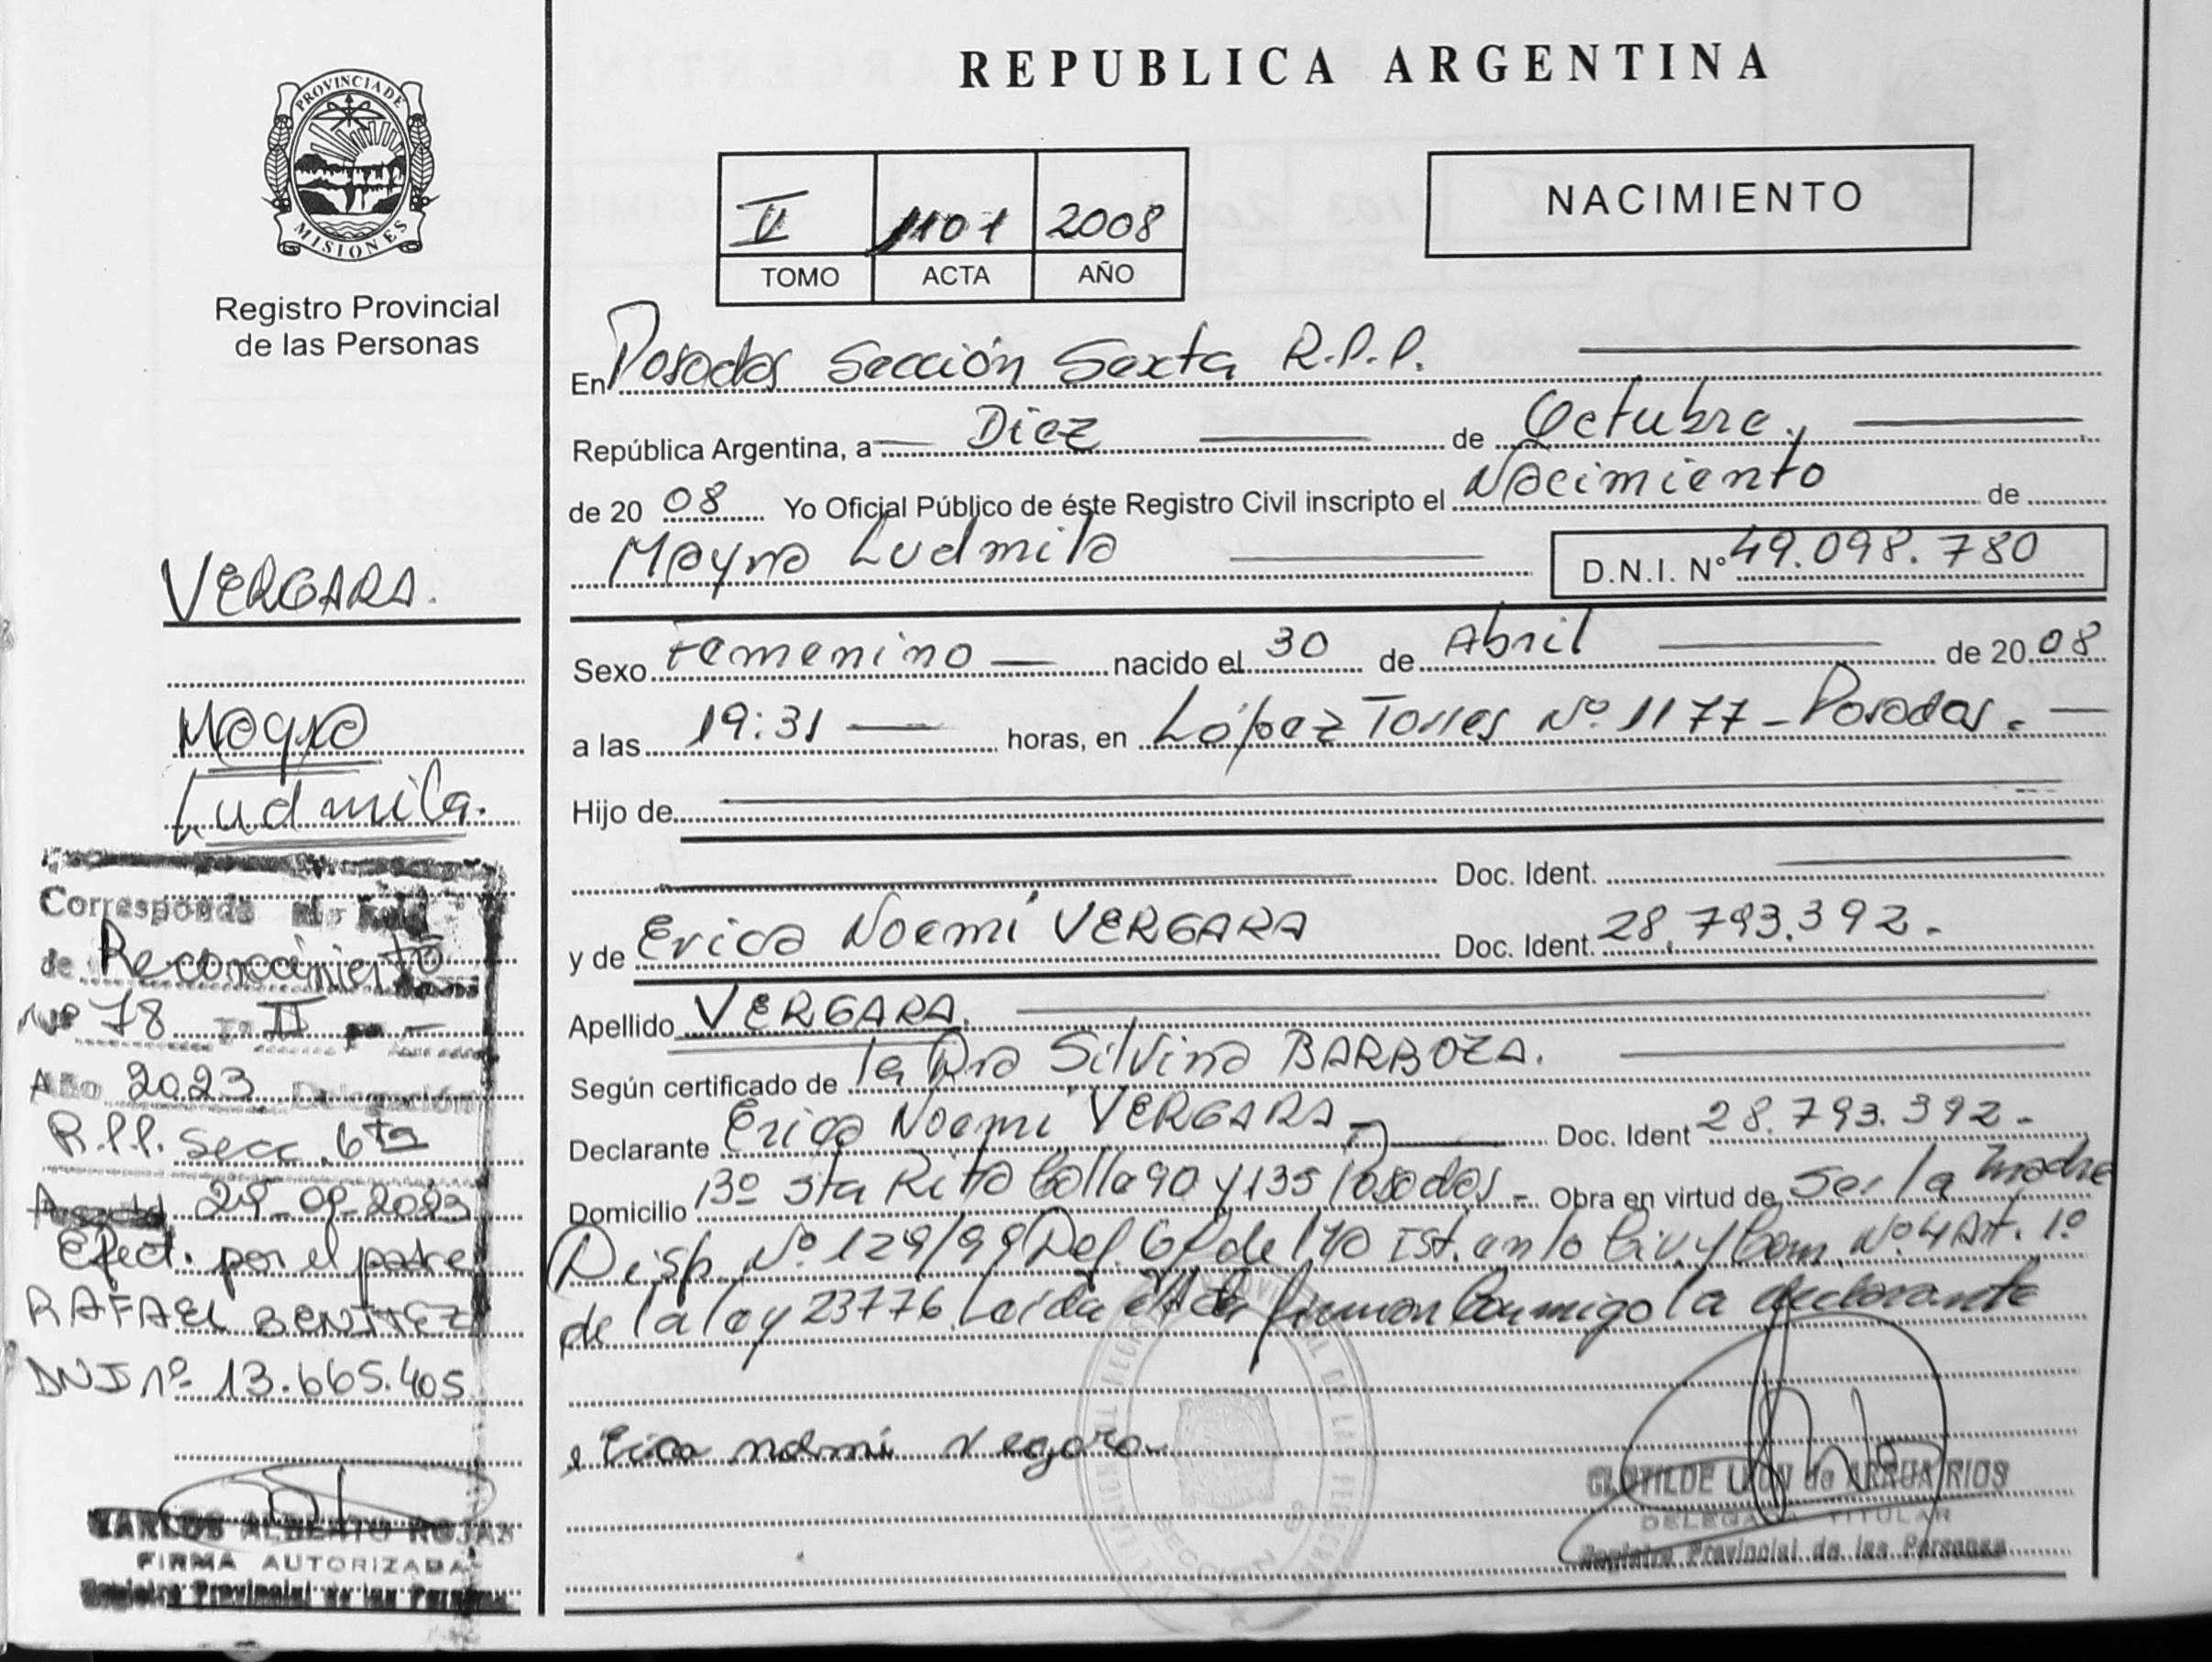 REPUBLICA ARGENTINA
PROVINCIA DE
MISIONES
Registro Provincial
de las Personas
V 1101 2008
TOMO ACTA AÑO
NACIMIENTO
En Posadas Sección Sexta R.P.P.
República Argentina, a Diez de Octubre
de 20 08 Yo Oficial Público de éste Registro Civil inscripto el Nacimiento de
Mayra Ludmila D.N.I. Nº 49.098.780
Sexo Femenino nacido el 30 de Abril de 20 08
a las 19:31 horas, en López Torres Nº 1177 - Posadas.
Hijo de
Doc. Ident.
y de Erica Noemí VERGARA Doc. Ident. 28.793.392.-
Apellido VERGARA.
Según certificado de la Dra Silvina BARBOZA.
Declarante Erica Noemí VERGARA Doc. Ident 28.793.392.-
Domicilio Bº Sta Rita Calle 90 y 135 Posadas - Obra en virtud de Ser la madre
Disp. Nº 129/99 Def. Of de 1ra Ist. en lo Civ. y Com. Nº 4 Art. 1º
de la ley 23776 Leída el Acta firman conmigo la declarante
Erica noemi vegara
CLOTILDE LEON de ARRUA RIOS
DELEGADA TITULAR
Registro Provincial de las Personas
VERGARA.
Mayra
Ludmila.
Corresponde
de Reconocimiento
Nº 78 Tº II
Año 2023 Delegación
R.P.P. Secc. 6ta
29-09-2023
Efect. por el padre
RAFAEL BENITEZ
DNI nº 13.665.405
CARLOS ALBERTO ROJAS
FIRMA AUTORIZADA
Registro Provincial de las Personas